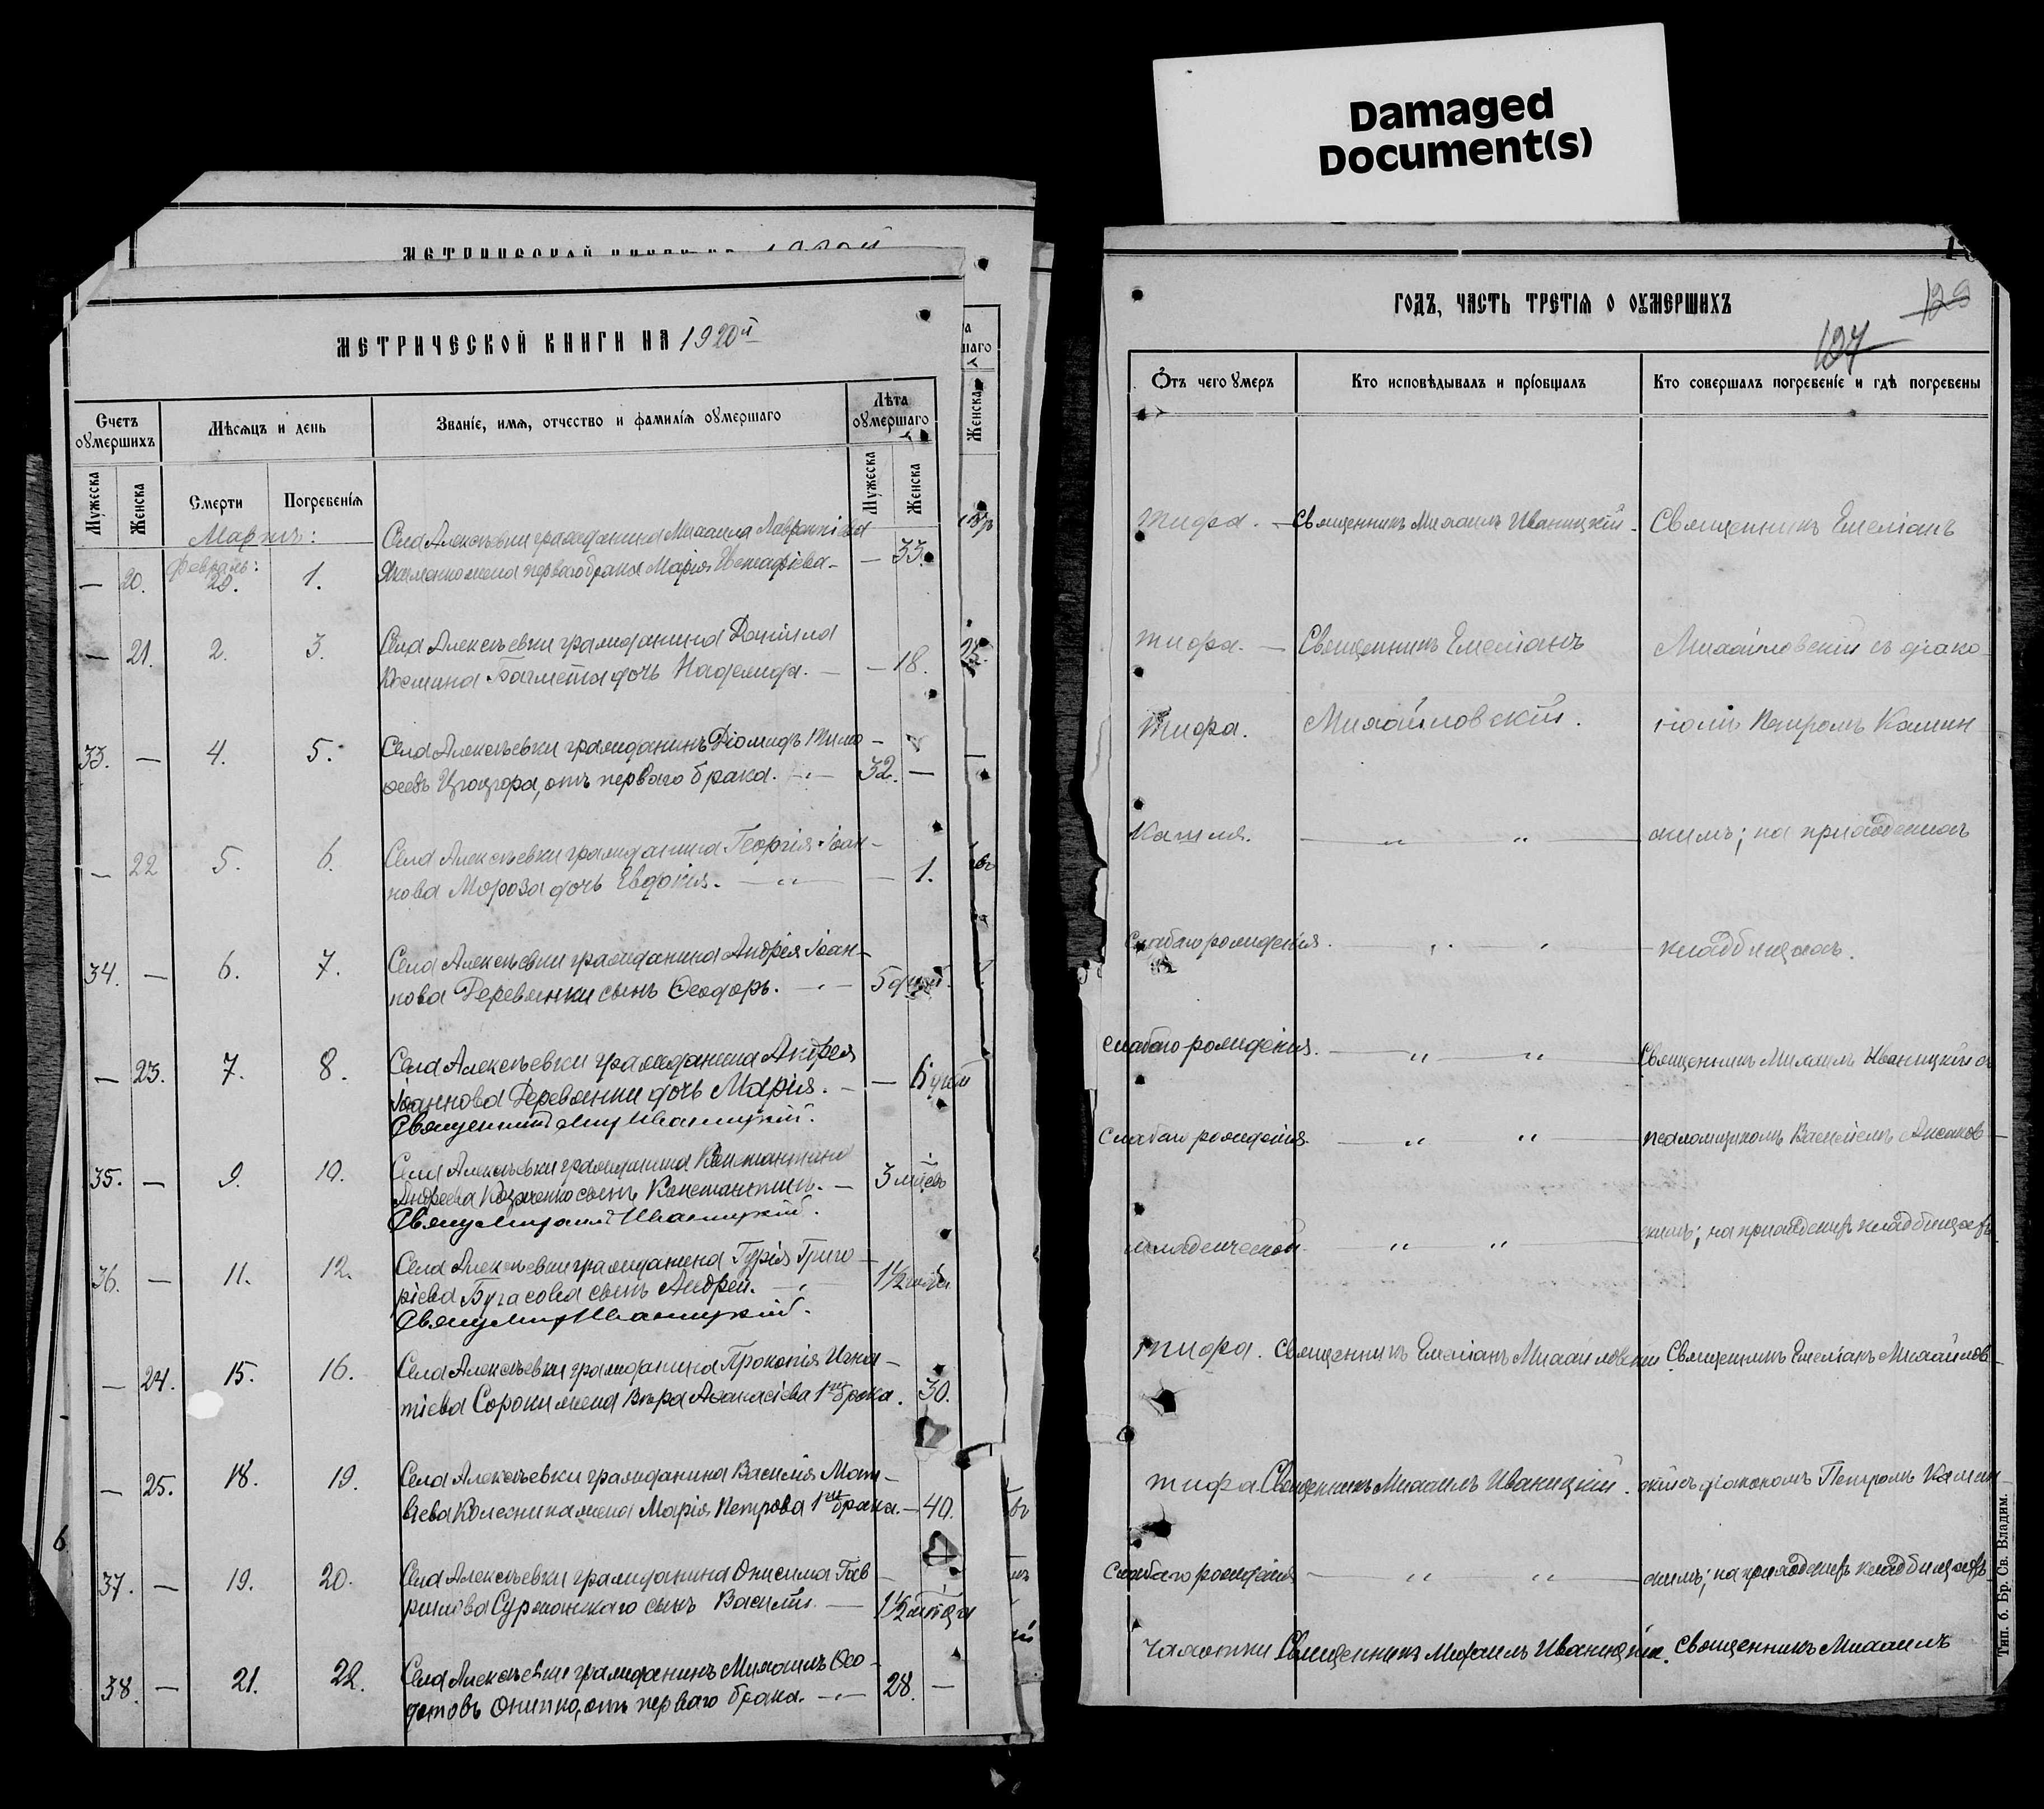 Damaged
Document(s)
МЕТРИЧЕСКОЙ КНИГИ НА 1920й
Счетъ оумершихъ
Мѣсяцъ и день
Званіе, имя, отчество и фамилія оумершаго
Лѣта оумершаго
Мужеска
Женска
Смерти
Погребенія
Мужеска
Женска
Мартъ:
Села Алексѣевки гражданина Михаила
Февраль:
— 20. 29. 1. жена перваго брака Марія — — 33.
— 21. 2. 3. Села Алексѣевки гражданина Даніила
Космина Бахмета дочь Надежда. — — 18.
33. — 4. 5. Села Алексѣевки гражданинъ Діомидъ Тимо-
ѳеевъ Цюцюра, отъ перваго брака. — 32. —
— 22 5. 6. Села Алексѣевки гражданина Георгія Іоан-
нова Мороза дочь Евдокія. — „ — — 1.
34. — 6. 7. Села Алексѣевки гражданина Андрея Іоан-
нова Деревянки сынъ Ѳеодоръ. — 5 дней.
— 23. 7. 8. Села Алексѣевки гражданина Андрея
Іоаннова Деревянки дочь Марія. — — 6 дней
Священникъ Мих Иваницкій.
35. — 9. 10. Села Алексѣевки гражданина Константина
Андреева Козаченко сынъ Константинъ. — 3 мѣсяц
Свящ Михаилъ Иваницкій.
36. — 11. 12. Села Алексѣевки гражданина Гурія Григо-
ріева Бугасова сынъ Андрей. — 1½ года
Свящ Мих Иваницкій.
— 24. 15. 16. Села Алексѣевки гражданина Прокопія Игна-
тіева Сороки жена Вѣра Аѳанасіева 1го брака. 30.
— 25. 18. 19. Села Алексѣевки гражданина Василія Мат-
вѣева Колесника жена Марія Петрова 1го брака. — 40.
37. — 19. 20. Села Алексѣевки гражданина Онисима Гав-
риилова Суржанскаго сынъ Василій. — 1½ мѣсяца
38. — 21. 22. Села Алексѣевки гражданинъ Михаилъ Ѳео-
дотовъ Онипко, отъ перваго брака. — 28. —
ГОДЪ, ЧАСТЬ ТРЕТІЯ О ОУМЕРШИХЪ
129
127
Отъ чего умеръ
Кто исповѣдывалъ и пріобщалъ
Кто совершалъ погребеніе и гдѣ погребены
тифа. — Священникъ Михаилъ Иваницкій. Священникъ Емеліанъ
тифа. — Священникъ Емеліанъ Михайловскій съ діако-
тифа. Михайловскій. номъ Петромъ Камин-
кашля. — „ „ — скимъ; на приходскихъ
слабаго рожденія. — „ „ — кладбищахъ.
слабаго рожденія. — „ „ — Священникъ Михаилъ Иваницкій съ
слабаго рожденія. — „ „ — псаломщикомъ Василіемъ
младенческой. — „ „ — скимъ; на приходскихъ кладбищахъ
тифа. Священникъ Емеліанъ Михайловскій. Священникъ Емеліанъ Михайлов-
тифа. Священникъ Михаилъ Иваницкій. скій съ діакономъ Петромъ Камин-
слабаго рожденія — „ „ — скимъ; на приходскихъ кладбищахъ
чахотки Священникъ Михаилъ Иваницкій. Священникъ Михаилъ
Тип. б. Бр. Св. Владим.